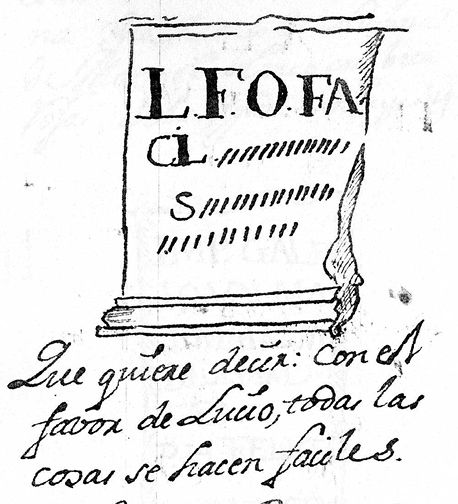 L. F. O. FA
CIL
S
Que quiere decir: Con est
favor de Lucio, todas las
cosas se hacen faciles.